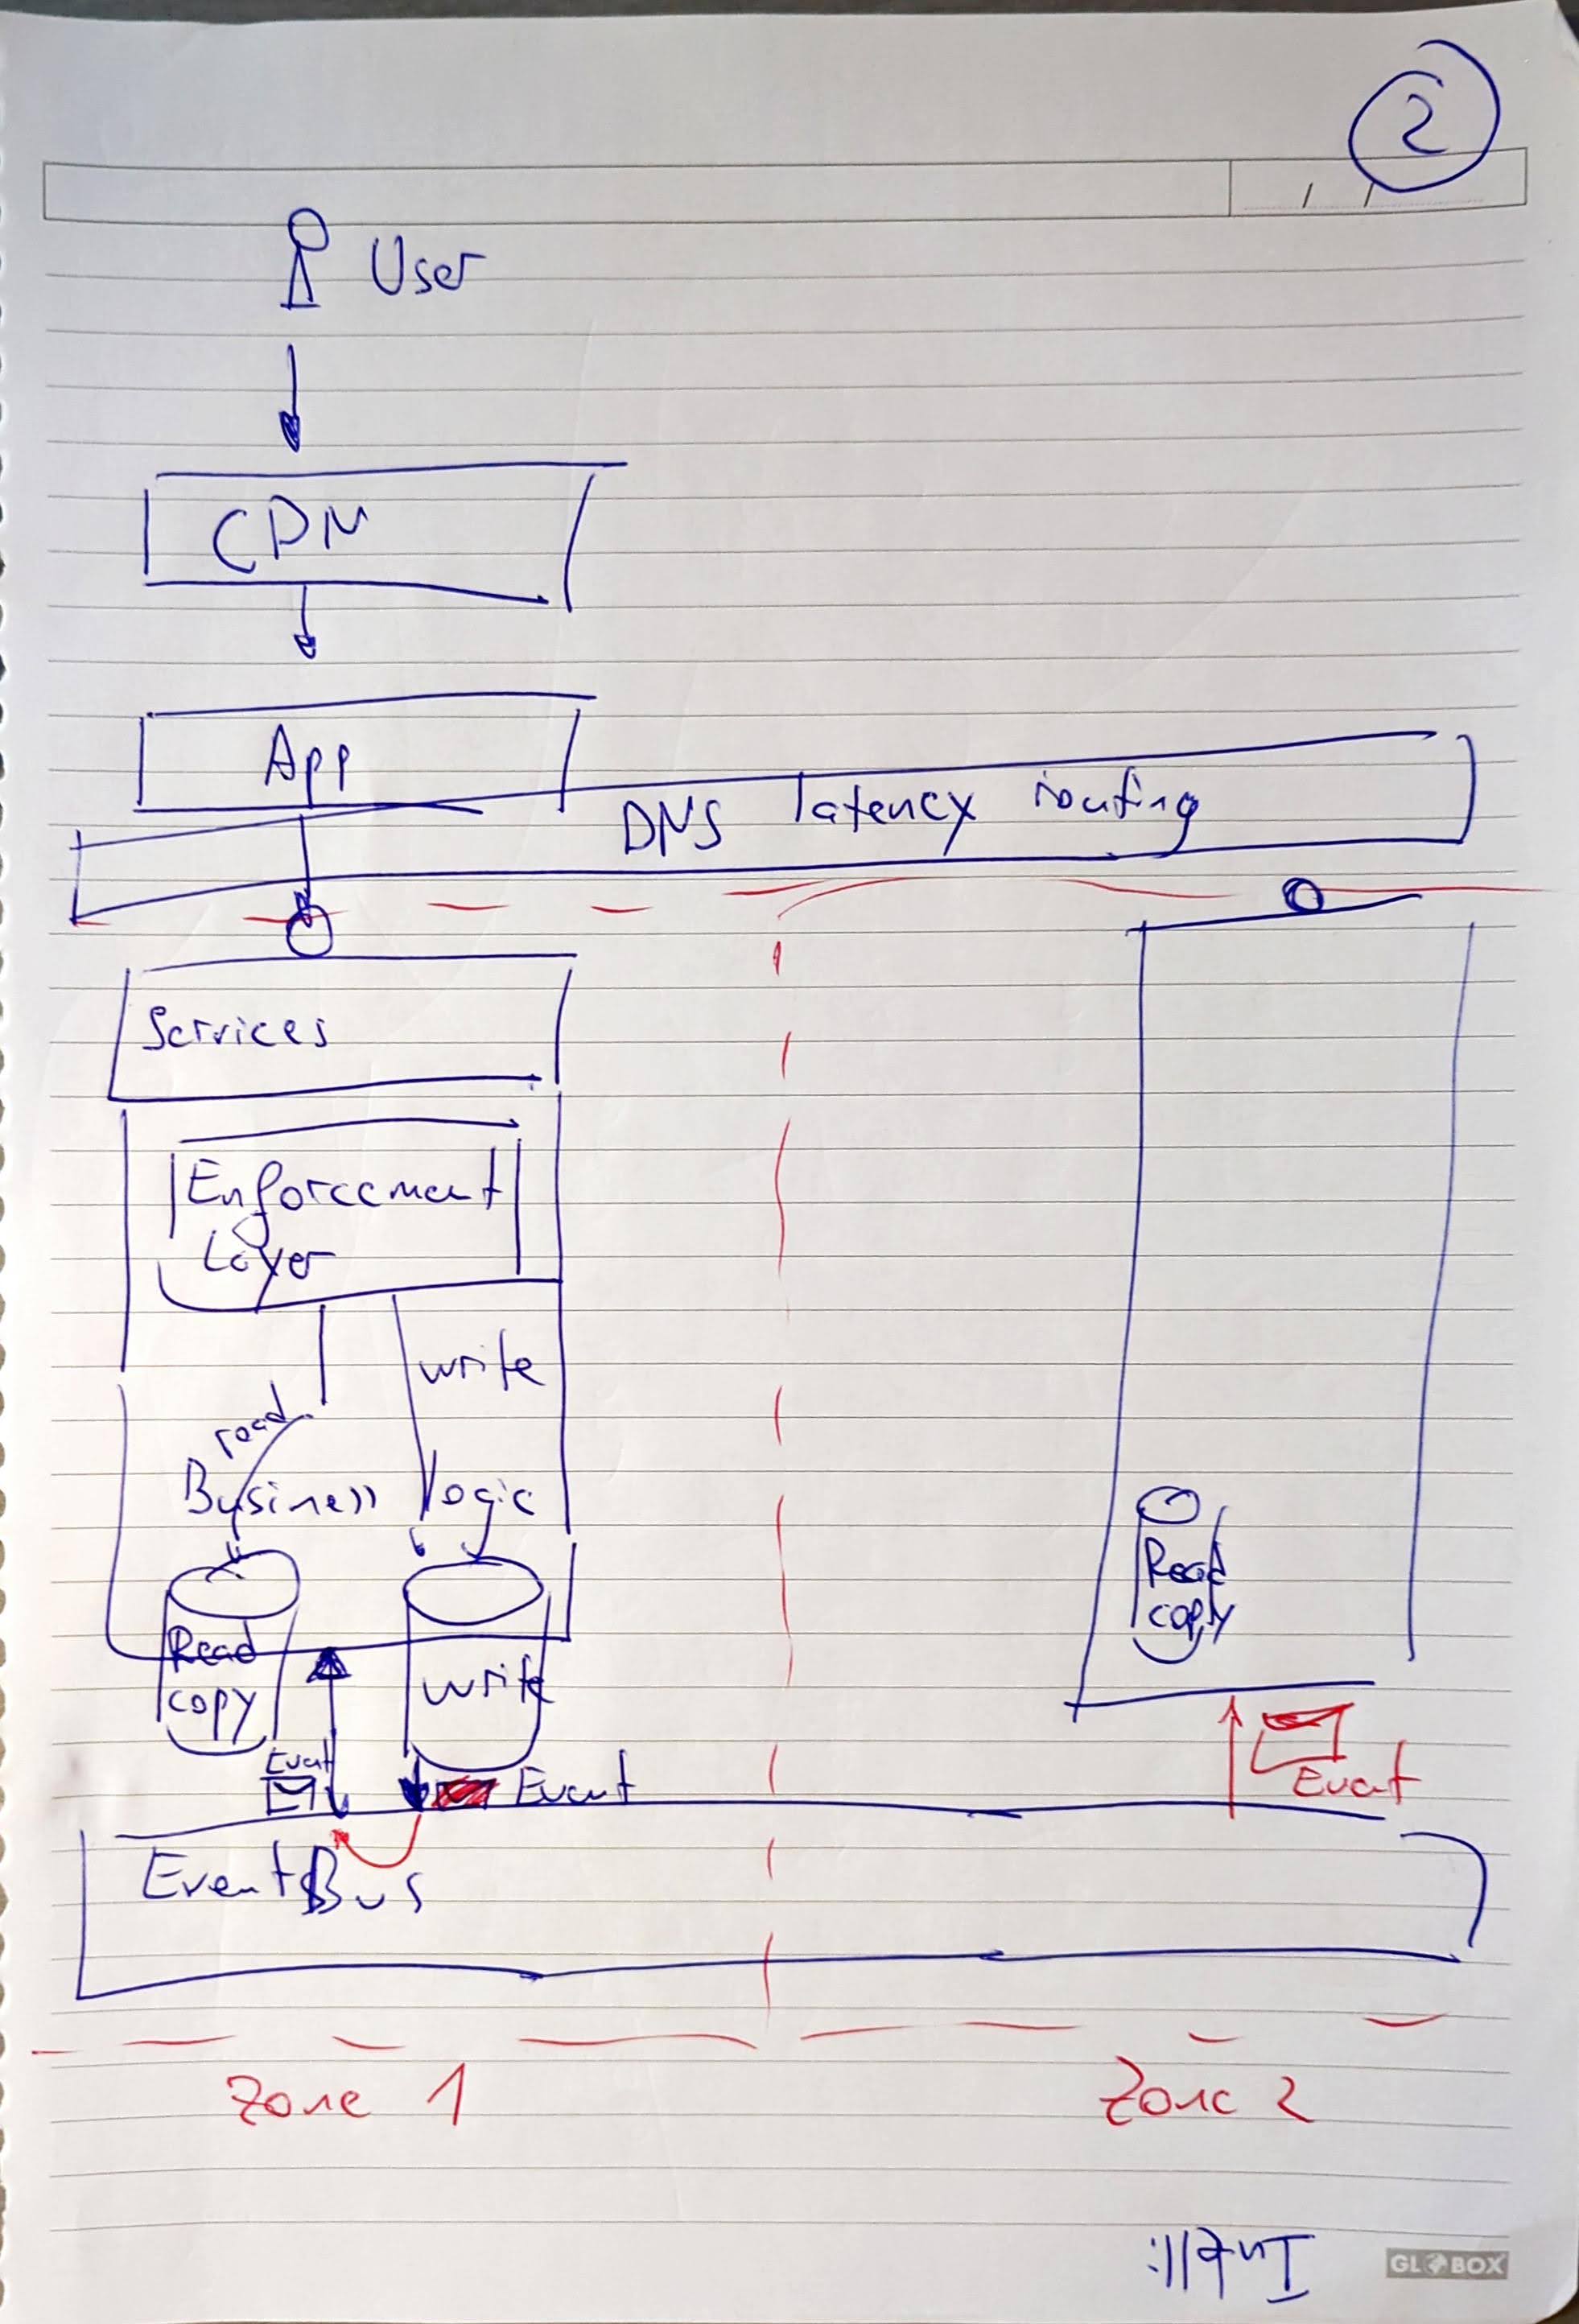 2
/ /
User
CDN
App
DNS latency routing
Services
Enforcement
Layer
write
read
Business logic
Read
copy
write
Read
copy
Event
Event
Event
Event Bus
Zone 1
Zone 2
GLOBOX